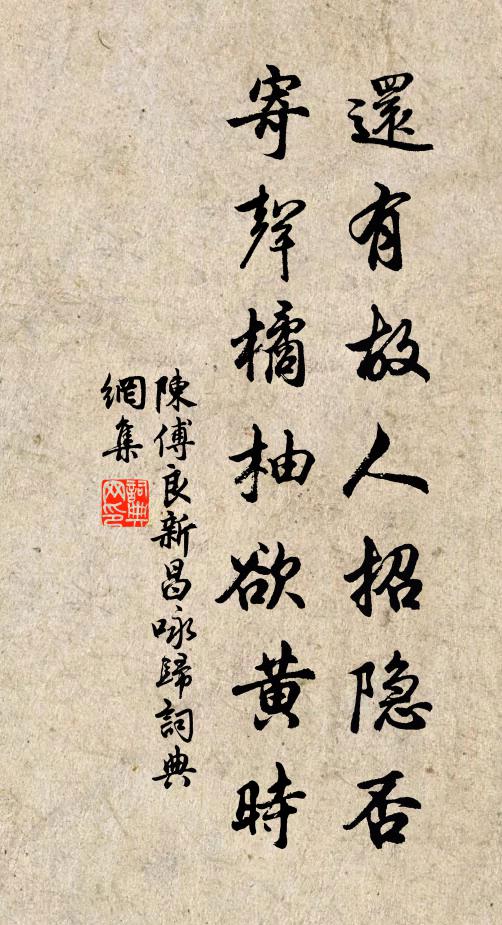 還有故人招隐否
寄聲橘柚欲黄時
陳傅良新昌咏歸詞典
網集
詞典网印